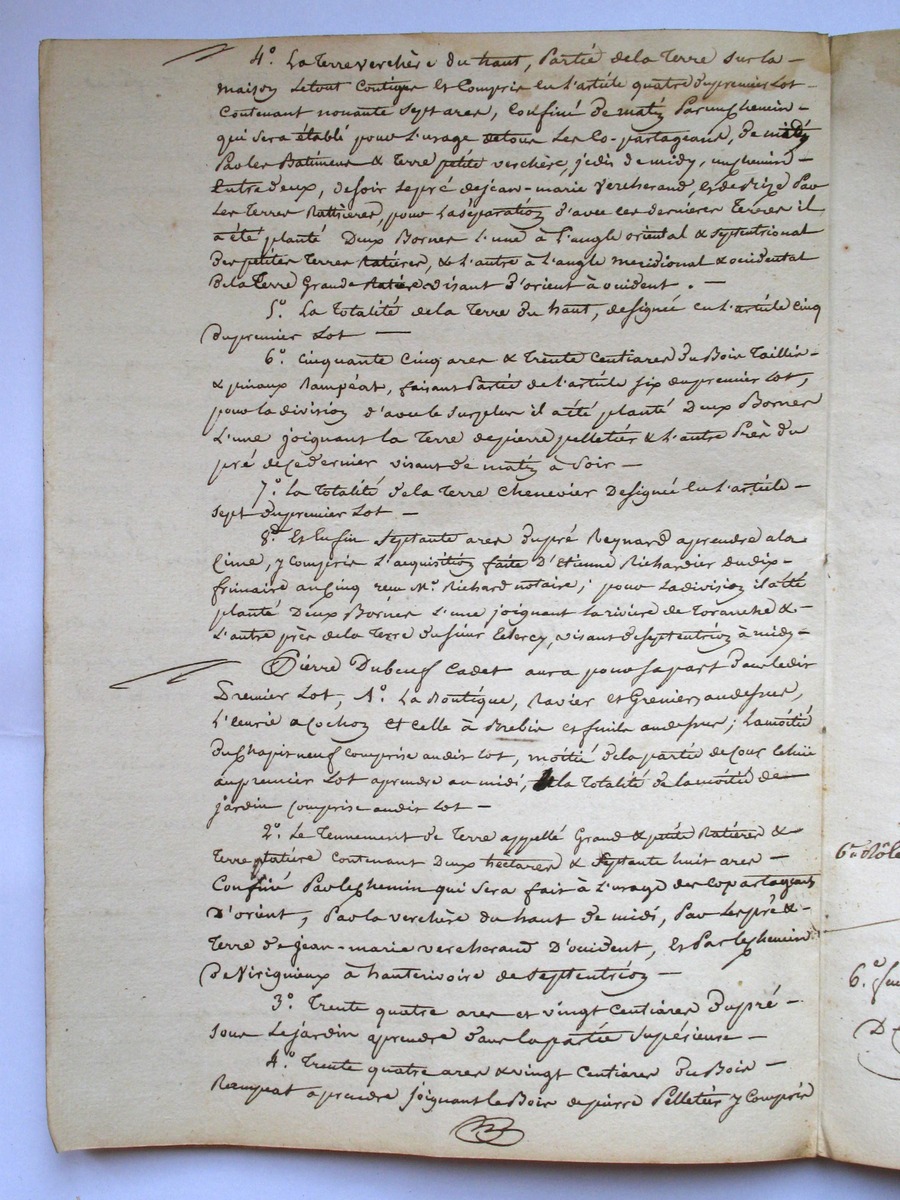 4.° La Terre verchère du haut, Partie de la Terre sur la –
maison Letout Contigue Et Comprise En L'article quatre du premier Lot –
Contenant nonante Sept ares, Confiné de matin Par un chemin –
qui sera établi pour L'usage de tous Les Co-partageans, de midy
Par les Batimens & Terre petite verchère, je dis de midy, un chemin –
Entre deux, de soir le pré de jean-marie Vercherand, et de Bize Par
Les Terres Ratières, pour La Séparation d'avec ces dernières Terres il
a été planté Deux Bornes L'une à L'angle oriental & septentrional
Des petites Terres Ratières, & L'autre à L'angle meridional & occidental
De la Terre Grande Ratière visant D'orient à occident. –
5.° La Totalité de la Terre du haut, designée en L'article Cinq
Du premier Lot —
6.° Cinquante Cinq ares & Trente Centiares Du Bois Taillis –
& pinaux Rampéat, faisant Partie de L'article six du premier Lot,
pour la division d'avec le surplus il a été planté Deux Bornes
L'une joignant la Terre de pierre pelletier & L'autre Près du
pré de ce dernier visant de matin à Soir –
7.° La Totalité de la Terre Chenevier Designée En L'article –
Sept Du premier Lot –
8.° Et Enfin Septante ares Du pré Reynard a prendre a la
Cime, y Compris L'acquisition faite D'Etienne Richardier Du dix-
frimaire an Cinq reçu M.e Richard notaire; pour La division il a été
planté Deux Bornes L'une joignant la riviere de Toranche &
L'autre près de la Terre du sieur , visant de Septentrion à midy –
Pierre Dubeuf Cadet aura pour sa part Dans Ledit
Premier Lot, 1.° La Boutique, Ravier et Grenier au dessus,
L'ecurie a Cochon Et Celle à Brebis et fenil au dessus; La moitié
Du Chapit neuf comprise au dit Lot, moitié de la partie de Cour
au premier Lot a prendre au midi, & la Totalité de la moitié de
jardin Comprise au dit Lot –
2.° Le Tennement de Terre appellé Grand & petite Ratières &
Terre platière Contenant Deux hectares & Septante huit ares –
Confiné Par le Chemin qui Sera fait à L'usage des Copartageans
D'orient, Par la verchère du haut de midi, Par Les pré &
Terre de jean-marie vercherand D'occident, Et Par Le chemin
De Virignieux à hauterivoire de Septentrion —
3.° Trente quatre ares et vingt Centiares Du pré –
Sous Le jardin a prendre Dans la partie Supérieure –
4.° Trente quatre ares & vingt Centiares Du Bois –
Rampeat a prendre joignant le Bois de pierre Pelletier y Compris
6.e Rôle
6.e